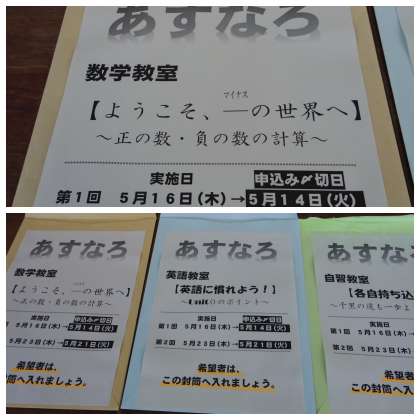 あすなろ
数学教室
マイナス
【ようこそ、―の世界へ】
～正の数・負の数の計算～
実施日 申込み〆切日
第1回 5月16日(木)→5月14日(火)
あすなろ
数学教室
【ようこそ、―の世界へ】
～正の数・負の数の計算～
実施日 申込み〆切日
5月16日(木)→5月14日(火)
5月23日(木)→5月21日(火)
希望者は、
この封筒へ入れましょう。
あすなろ
英語教室
【英語に慣れよう！】
～Unit0のポイント～
実施日 申込み〆切日
第1回 5月16日(木)→5月14日(火)
第2回 5月23日(木)→5月21日(火)
希望者は、
この封筒へ入れましょう。
あすな
自習教室
【各自持ち込
～千里の道も一歩よ
実施日
第1回 5月16日(木)
第2回 5月23日(木)
希望者
この封筒へ入